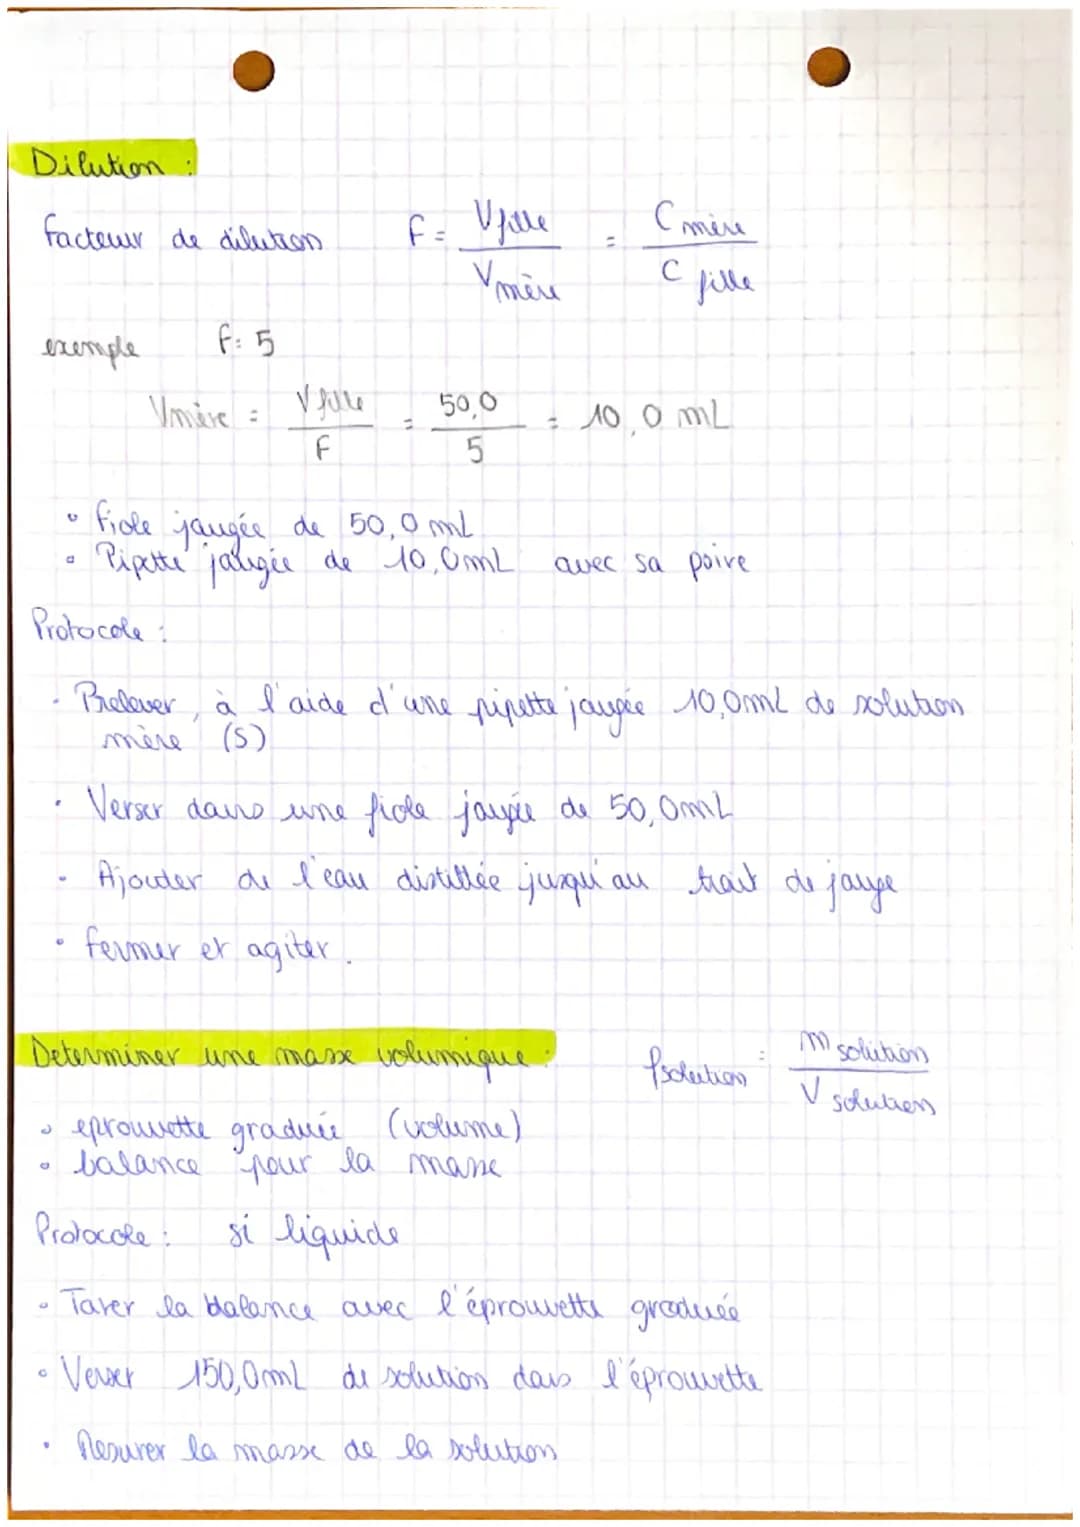 Dilution :
facteur de dilution F = V fille / V mère = C mère / C fille
exemple F = 5
Vmère = V fille / F = 50,0 / 5 = 10,0 mL
• fiole jaugée de 50,0 mL
• Pipette jaugée de 10,0 mL avec sa poire
Protocole :
• Prelever, à l'aide d'une pipette jaugée 10,0mL de solution
mère (S)
• Verser dans une fiole jaugée de 50,0mL
• Ajouter de l'eau distillée jusqu'au trait de jauge
• fermer et agiter.
Determiner une masse volumique : ρsolution = m solution / V solution
• eprouvette graduée (volume)
• balance pour la masse
Protocole : si liquide
• Tarer la balance avec l'éprouvette graduée
• Verser 150,0mL de solution dans l'éprouvette
• Mesurer la masse de la solution